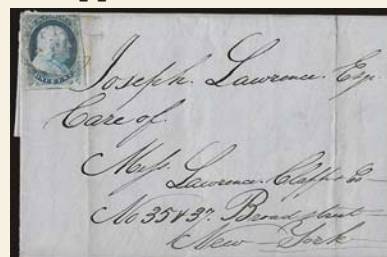 Joseph Lawrence Esq.
Care of
Mess. Lawrence Clapp & Co
No 35 & 37 Broad street
New York